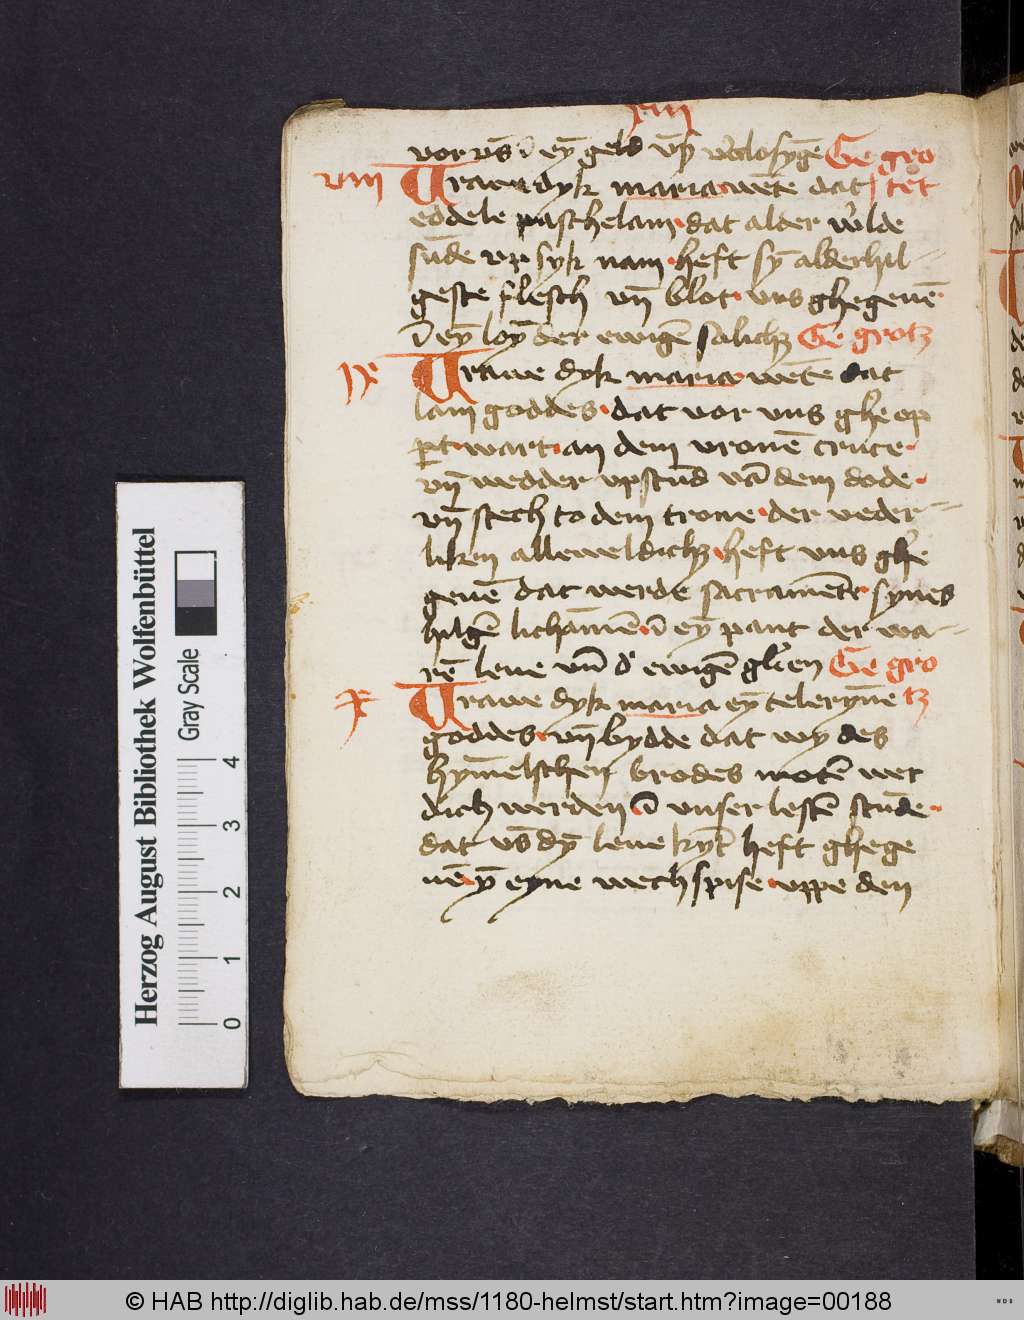 xiiij
vor vs̄ ī eȳ geld vn̄ v̓losyḡe Ge gro
viii Vrawe dyk maria wēte dat tet
eddele paschelam · dat alder w̓lde
sūde vp syk nam · heft sȳ alderhil-
geste flesch vn̄ blot · vns ghegeuē ·
ī eȳ loȳ der ewigē salichz Ge grotz
ix Vrawe dyk maria wēte dat
lam goddes · dat vor vns ghe op
pt wart · an dem vronē cruce ·
vn̄ wedder vpstūd vā dem dode ·
vn̄ stech to dem trone · der veder-
liken alleweldichz · heft vns ghe
geuē dat werde sacramēte · synes
hilgē lichāmē · ī eȳ pant der wa-
rē leue vn̄ d̓ ewigē glīen Ge gro
x Vrawe dyk maria eȳ telerȳne tz
goddes · vn̄ bydde dat wy des
hȳmelschen brodes motē wer
dich werden · ī vnser lestē stūde ·
dat vs̄ dȳ leue kȳt heft ghege
uē · ȳ eyne wech spise · vppe den
Herzog August Bibliothek Wolfenbüttel
Gray Scale
0 1 2 3 4
© HAB http://diglib.hab.de/mss/1180-helmst/start.htm?image=00188